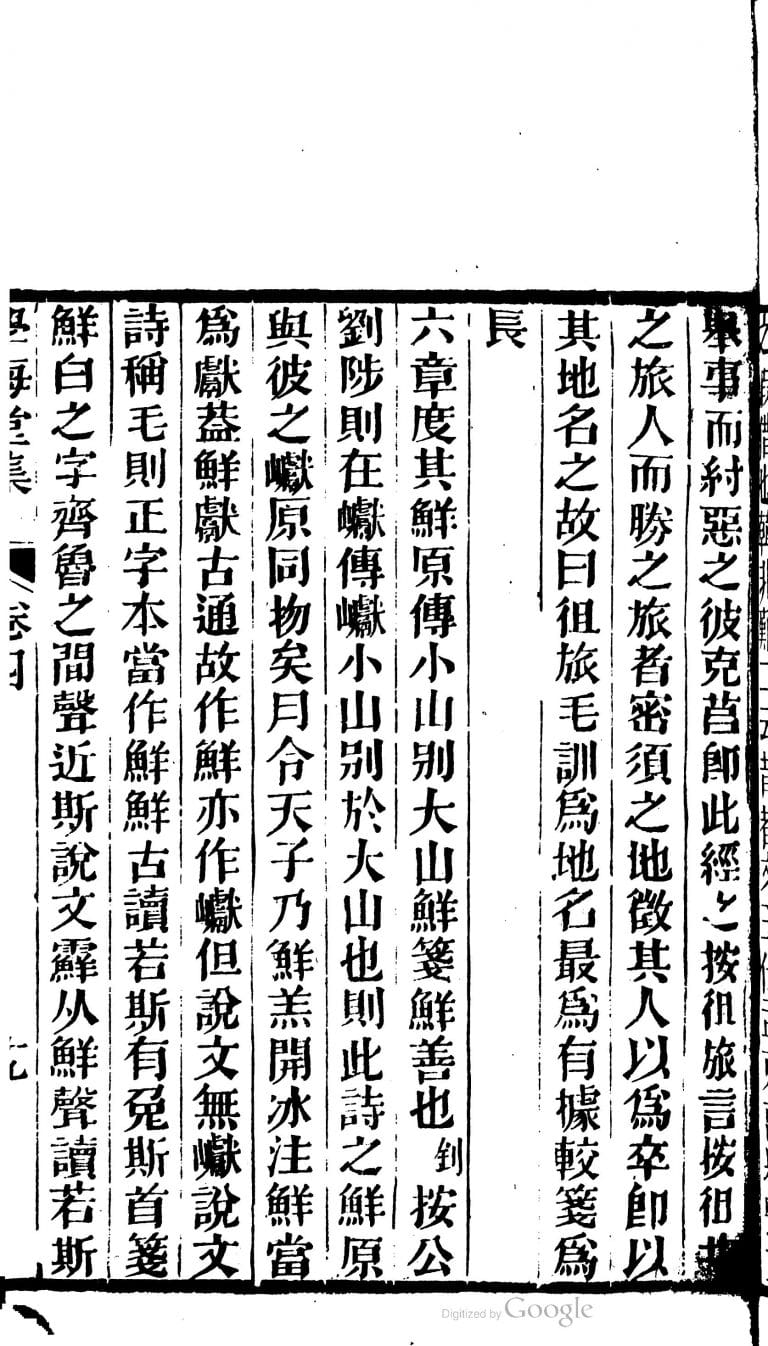 舉事而紂惡之彼克莒卽此經之按徂旅言按徂
之旅人而勝之旅者密須之地徵其人以爲卒卽以
其地名之故曰徂旅毛訓爲地名最爲有據較箋爲
長
六章度其鮮原傳小山別大山鮮箋鮮善也釗按公
劉陟則在巘傳巘小山別於大山也則此詩之鮮原
與彼之巘原同物矣月令天子乃鮮羔開冰注鮮當
爲獻葢鮮獻古通故作鮮亦作巘但說文無巘說文
詩稱毛則正字本當作鮮鮮古讀若斯有兔斯首箋
鮮白之字齊魯之間聲近斯說文霹从鮮聲讀若斯
學海堂集 卷四 九
Digitized by Google